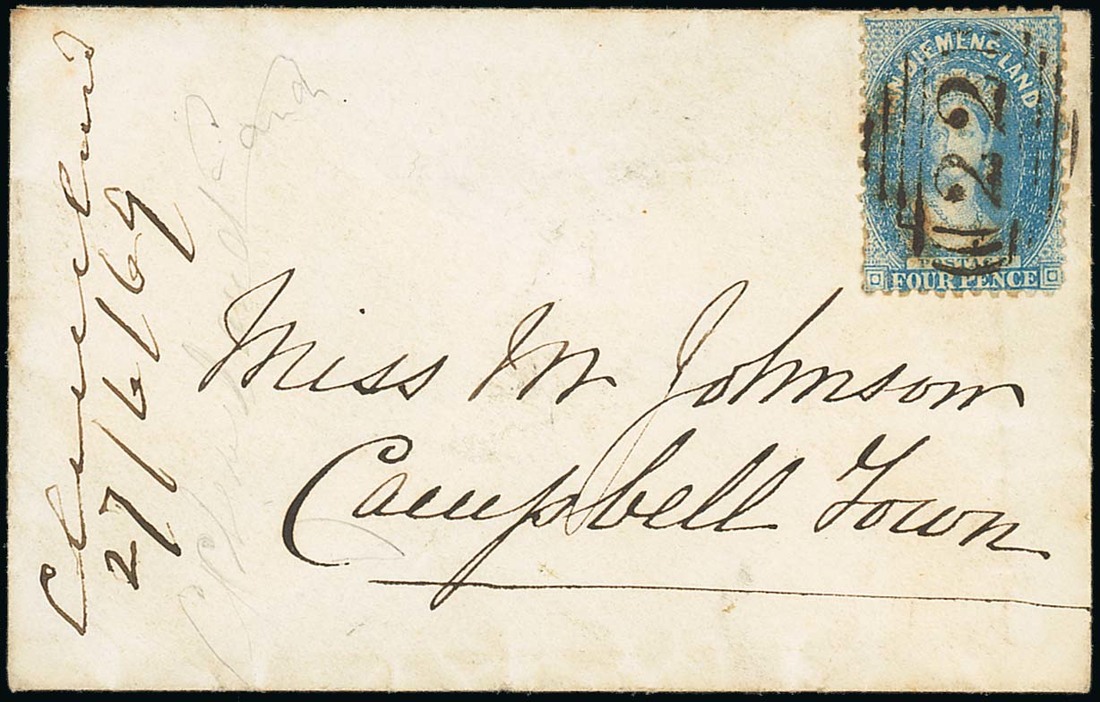 VAN DIEMENS LAND
22
POSTAGE
FOUR PENCE
Miss M Johnson
Campbell Town
Cleveland
27/6/69